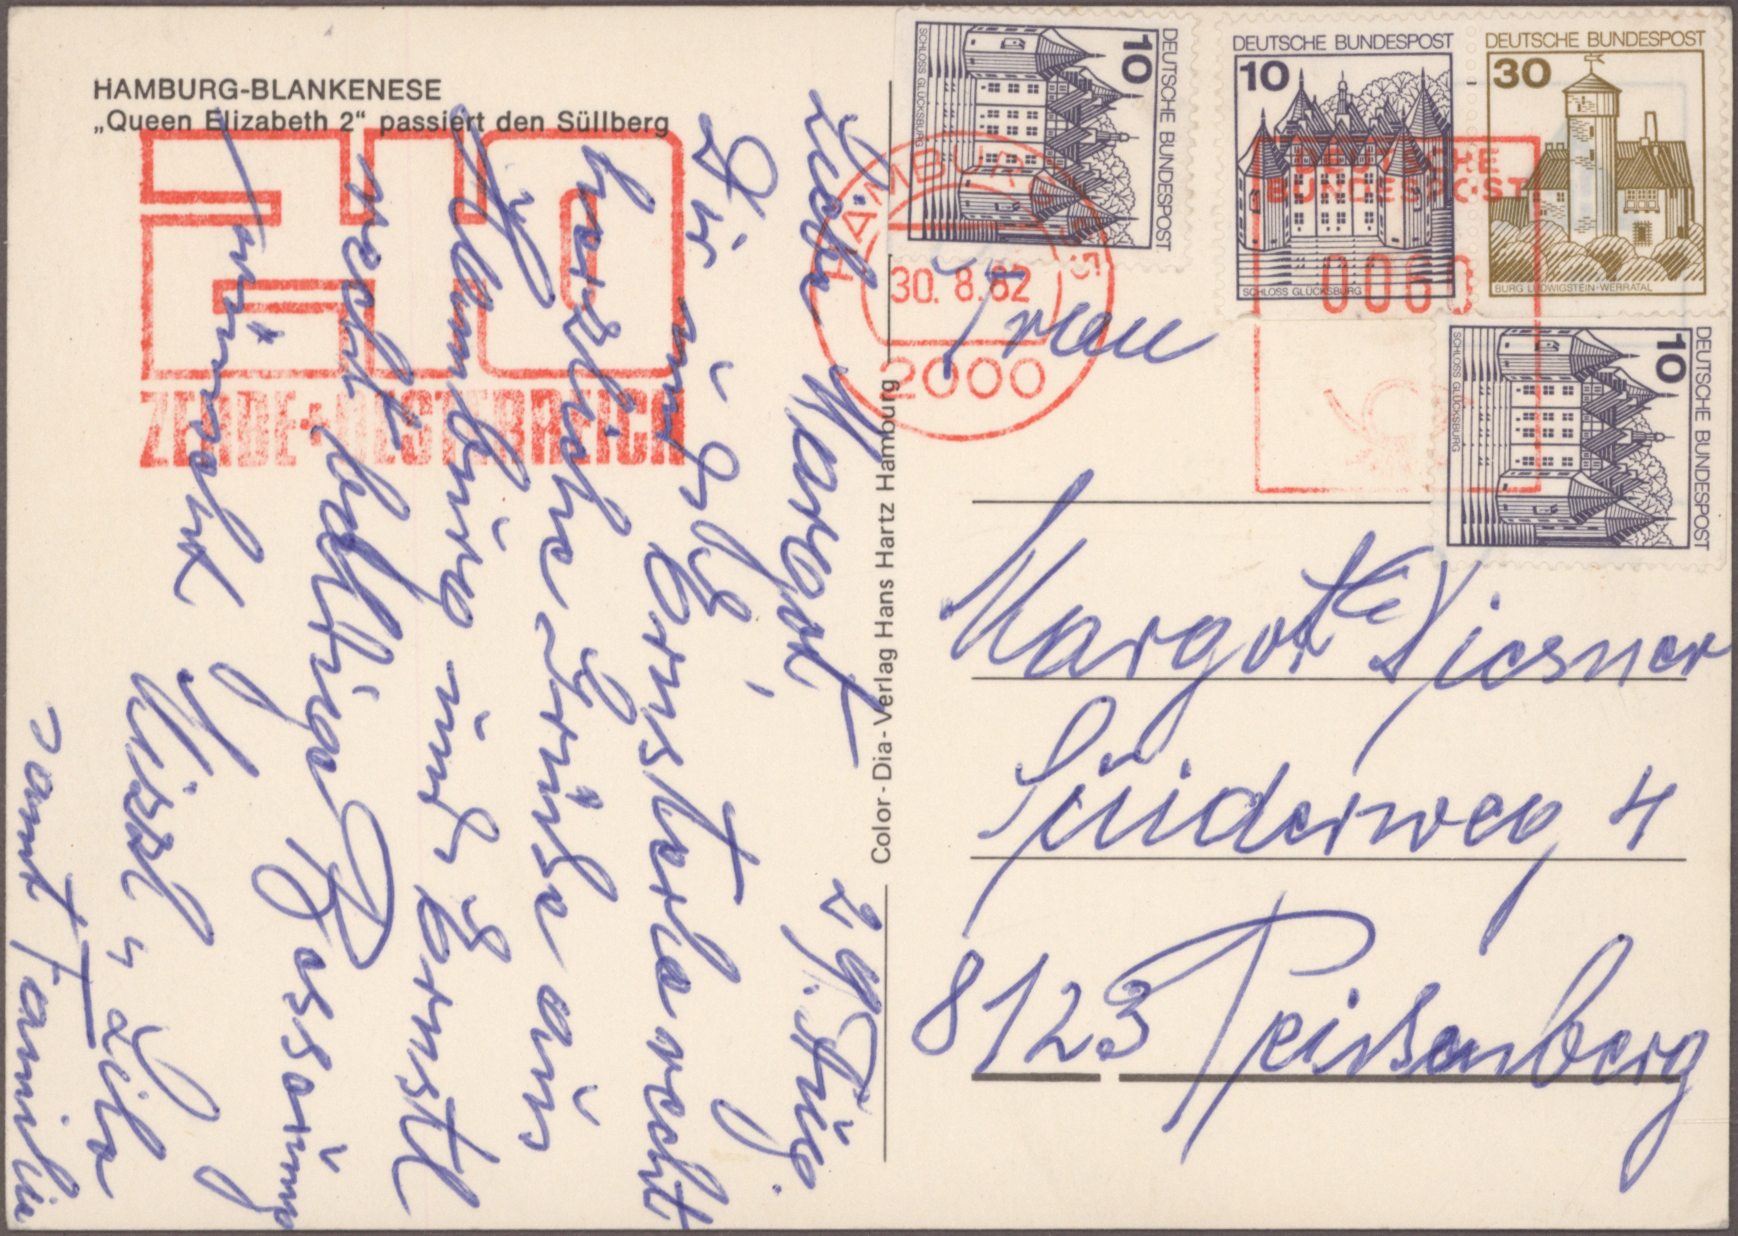 HAMBURG-BLANKENESE
„Queen Elizabeth 2“ passiert den Süllberg
ZEHDE+OESTERREICH
HAMBURG
30. 8.82
2000
DEUTSCHE BUNDESPOST
10
SCHLOSS GLÜCKSBURG
DEUTSCHE BUNDESPOST
10
SCHLOSS GLÜCKSBURG
DEUTSCHE BUNDESPOST
30
BURG LUDWIGSTEIN-WERRATAL
DEUTSCHE BUNDESPOST
10
SCHLOSS GLÜCKSBURG
DEUTSCHE
BUNDESPOST
0060
Color-Dia-Verlag Hans Hartz Hamburg
29. Aug.
Liebe Margot,
Dir und Ernsterle recht
herzliche Grüße aus
Hamburg und Ernstl
recht baldige Besserung
wünscht
Mizzl u Lilo
samt Familie
Frau
Margot Diesner
Süderweg 4
8123 Peißenberg